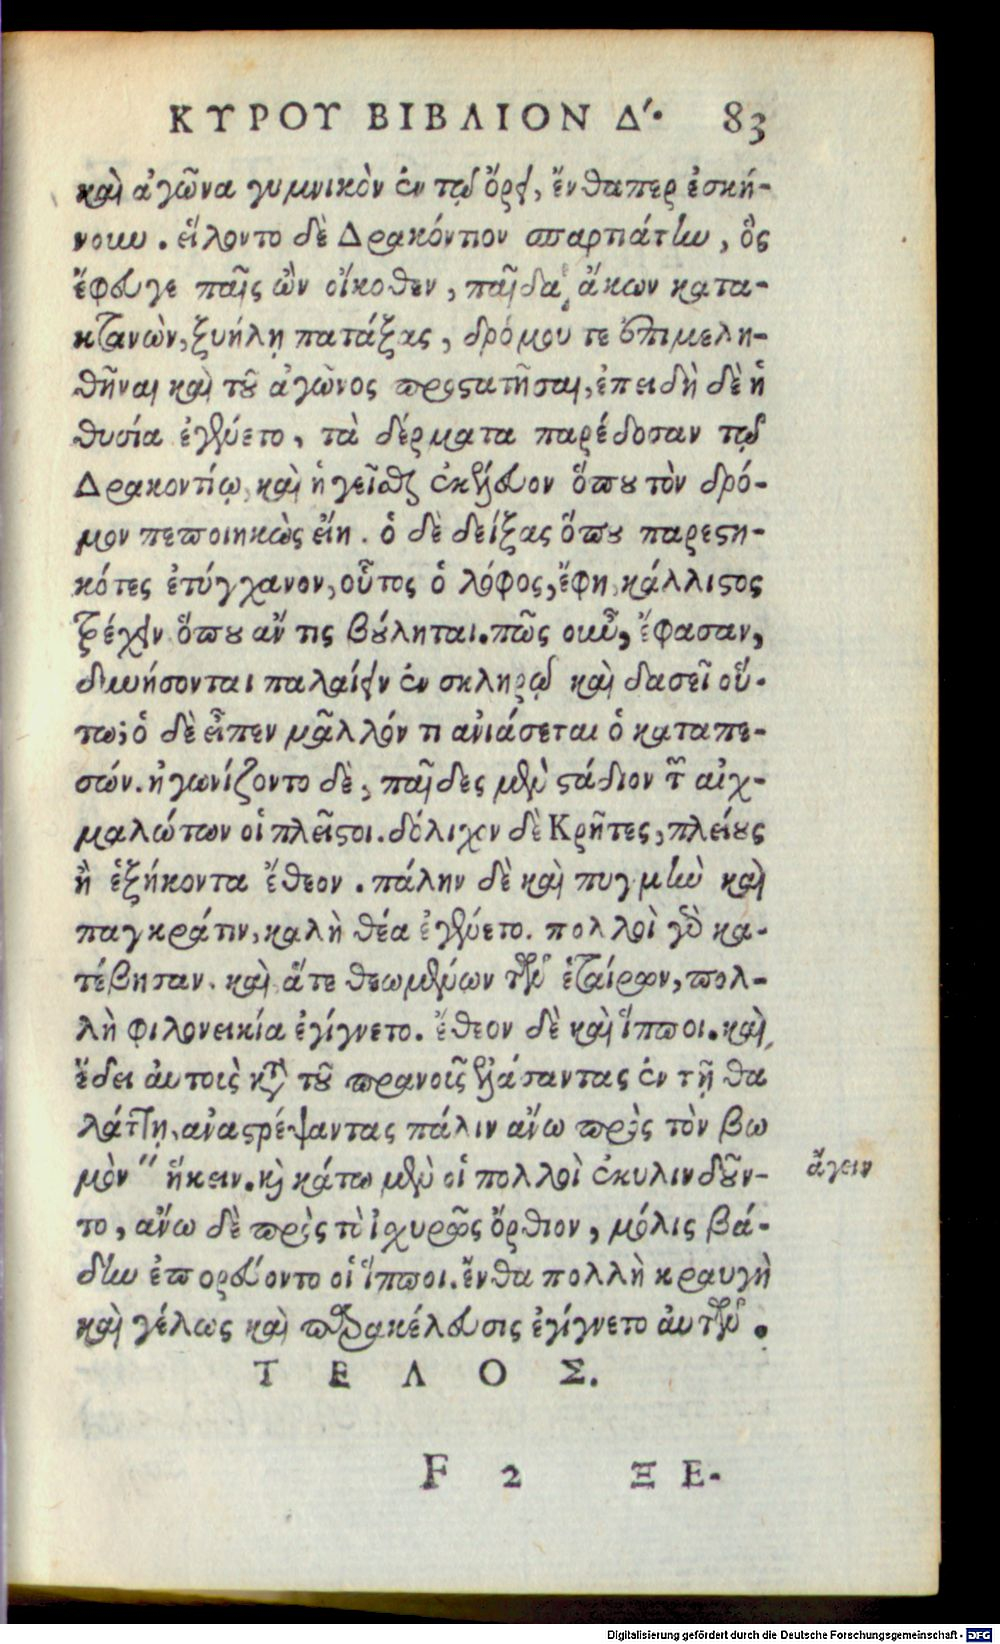 ΚΥΡΟΥ ΒΙΒΛΙΟΝ Δ'. 83
καὶ ἀγῶνα γυμνικὸν ἐν τῷ ὄρει, ἔνθαπερ ἐσκή-
νουν. εἵλοντο δὲ Δρακόντιον σπαρτιάτην, ὃς
ἔφευγε παῖς ὢν οἴκοθεν, παῖδα ἄκων κατα-
κτανὼν, ξυήλῃ πατάξας, δρόμου τε ἐπιμελη-
θῆναι καὶ τοῦ ἀγῶνος προστατῆσαι, ἐπειδὴ δὲ ἡ
θυσία ἐγένετο, τὰ δέρματα παρέδοσαν τῷ
Δρακοντίῳ, καὶ ἡγεῖσθαι ἐκέλευον ὅπου τὸν δρό-
μον πεποιηκὼς εἴη. ὁ δὲ δείξας ὅπου παρεστη-
κότες ἐτύγχανον, οὗτος ὁ λόφος, ἔφη, κάλλιστος
τρέχειν ὅπου ἄν τις βούληται. πῶς οὖν, ἔφασαν,
δυνήσονται παλαίειν ἐν σκληρῷ καὶ δασεῖ οὕ-
τω; ὁ δὲ εἶπεν μᾶλλόν τι ἀνιάσεται ὁ καταπε-
σών. ἠγωνίζοντο δὲ, παῖδες μὲν στάδιον τῶν αἰχ-
μαλώτων οἱ πλεῖστοι. δόλιχον δὲ Κρῆτες, πλείους
ἢ ἑξήκοντα ἔθεον. πάλην δὲ καὶ πυγμὴν καὶ
παγκράτιν, καλὴ θέα ἐγένετο. πολλοὶ γὰρ κα-
τέβησαν. καὶ ἅτε θεωμένων τῶν ἑταίρων, πολ-
λὴ φιλονεικία ἐγίγνετο. ἔθεον δὲ καὶ ἵπποι. καὶ
ἔδει ἀυτοὺς κατὰ τοῦ πρανοῖς ἐλάσαντας ἐν τῇ θα
λάττῃ, ἀναστρέψαντας πάλιν ἄνω πρὸς τὸν βω
μὸν " ἥκειν. καὶ κάτω μὲν οἱ πολλοὶ ἐκυλινδοῦν- ἄγειν
το, ἄνω δὲ πρὸς τὸ ἰχυρῶς ὄρθιον, μόλις βά-
δην ἐπορεύοντο οἱ ἵπποι. ἔνθα πολλὴ κραυγὴ
καὶ γέλως καὶ παρακέλευσις ἐγίγνετο ἀυτῶν.
ΤΕΛΟΣ.
F 2 ΞΕ.
Digitalisierung gefördert durch die Deutsche Forschungsgemeinschaft - DFG